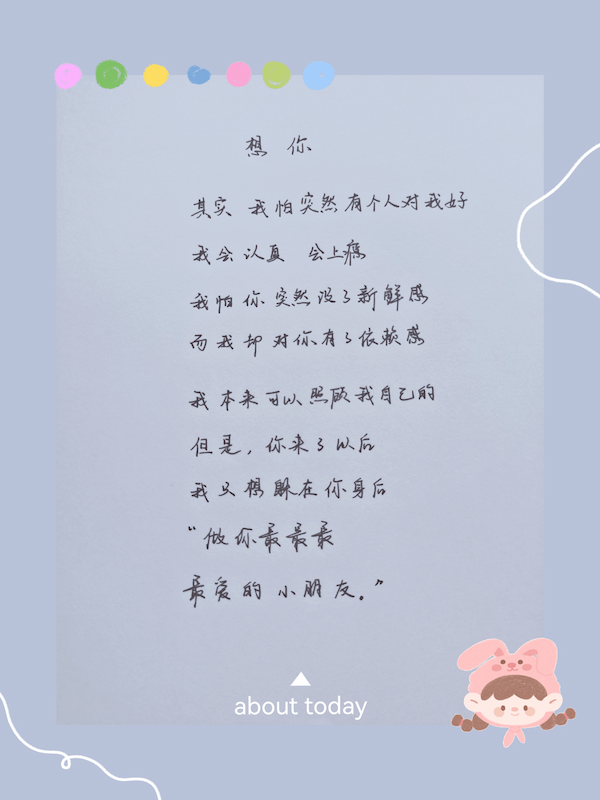 想 你
其实 我怕突然有个人对我好
我会认真 会上瘾
我怕你突然没了新鲜感
而我却对你有了依赖感
我本来可以照顾我自己的
但是，你来了以后
我只想躲在你身后
“做你最最最
最爱的小朋友。”
about today